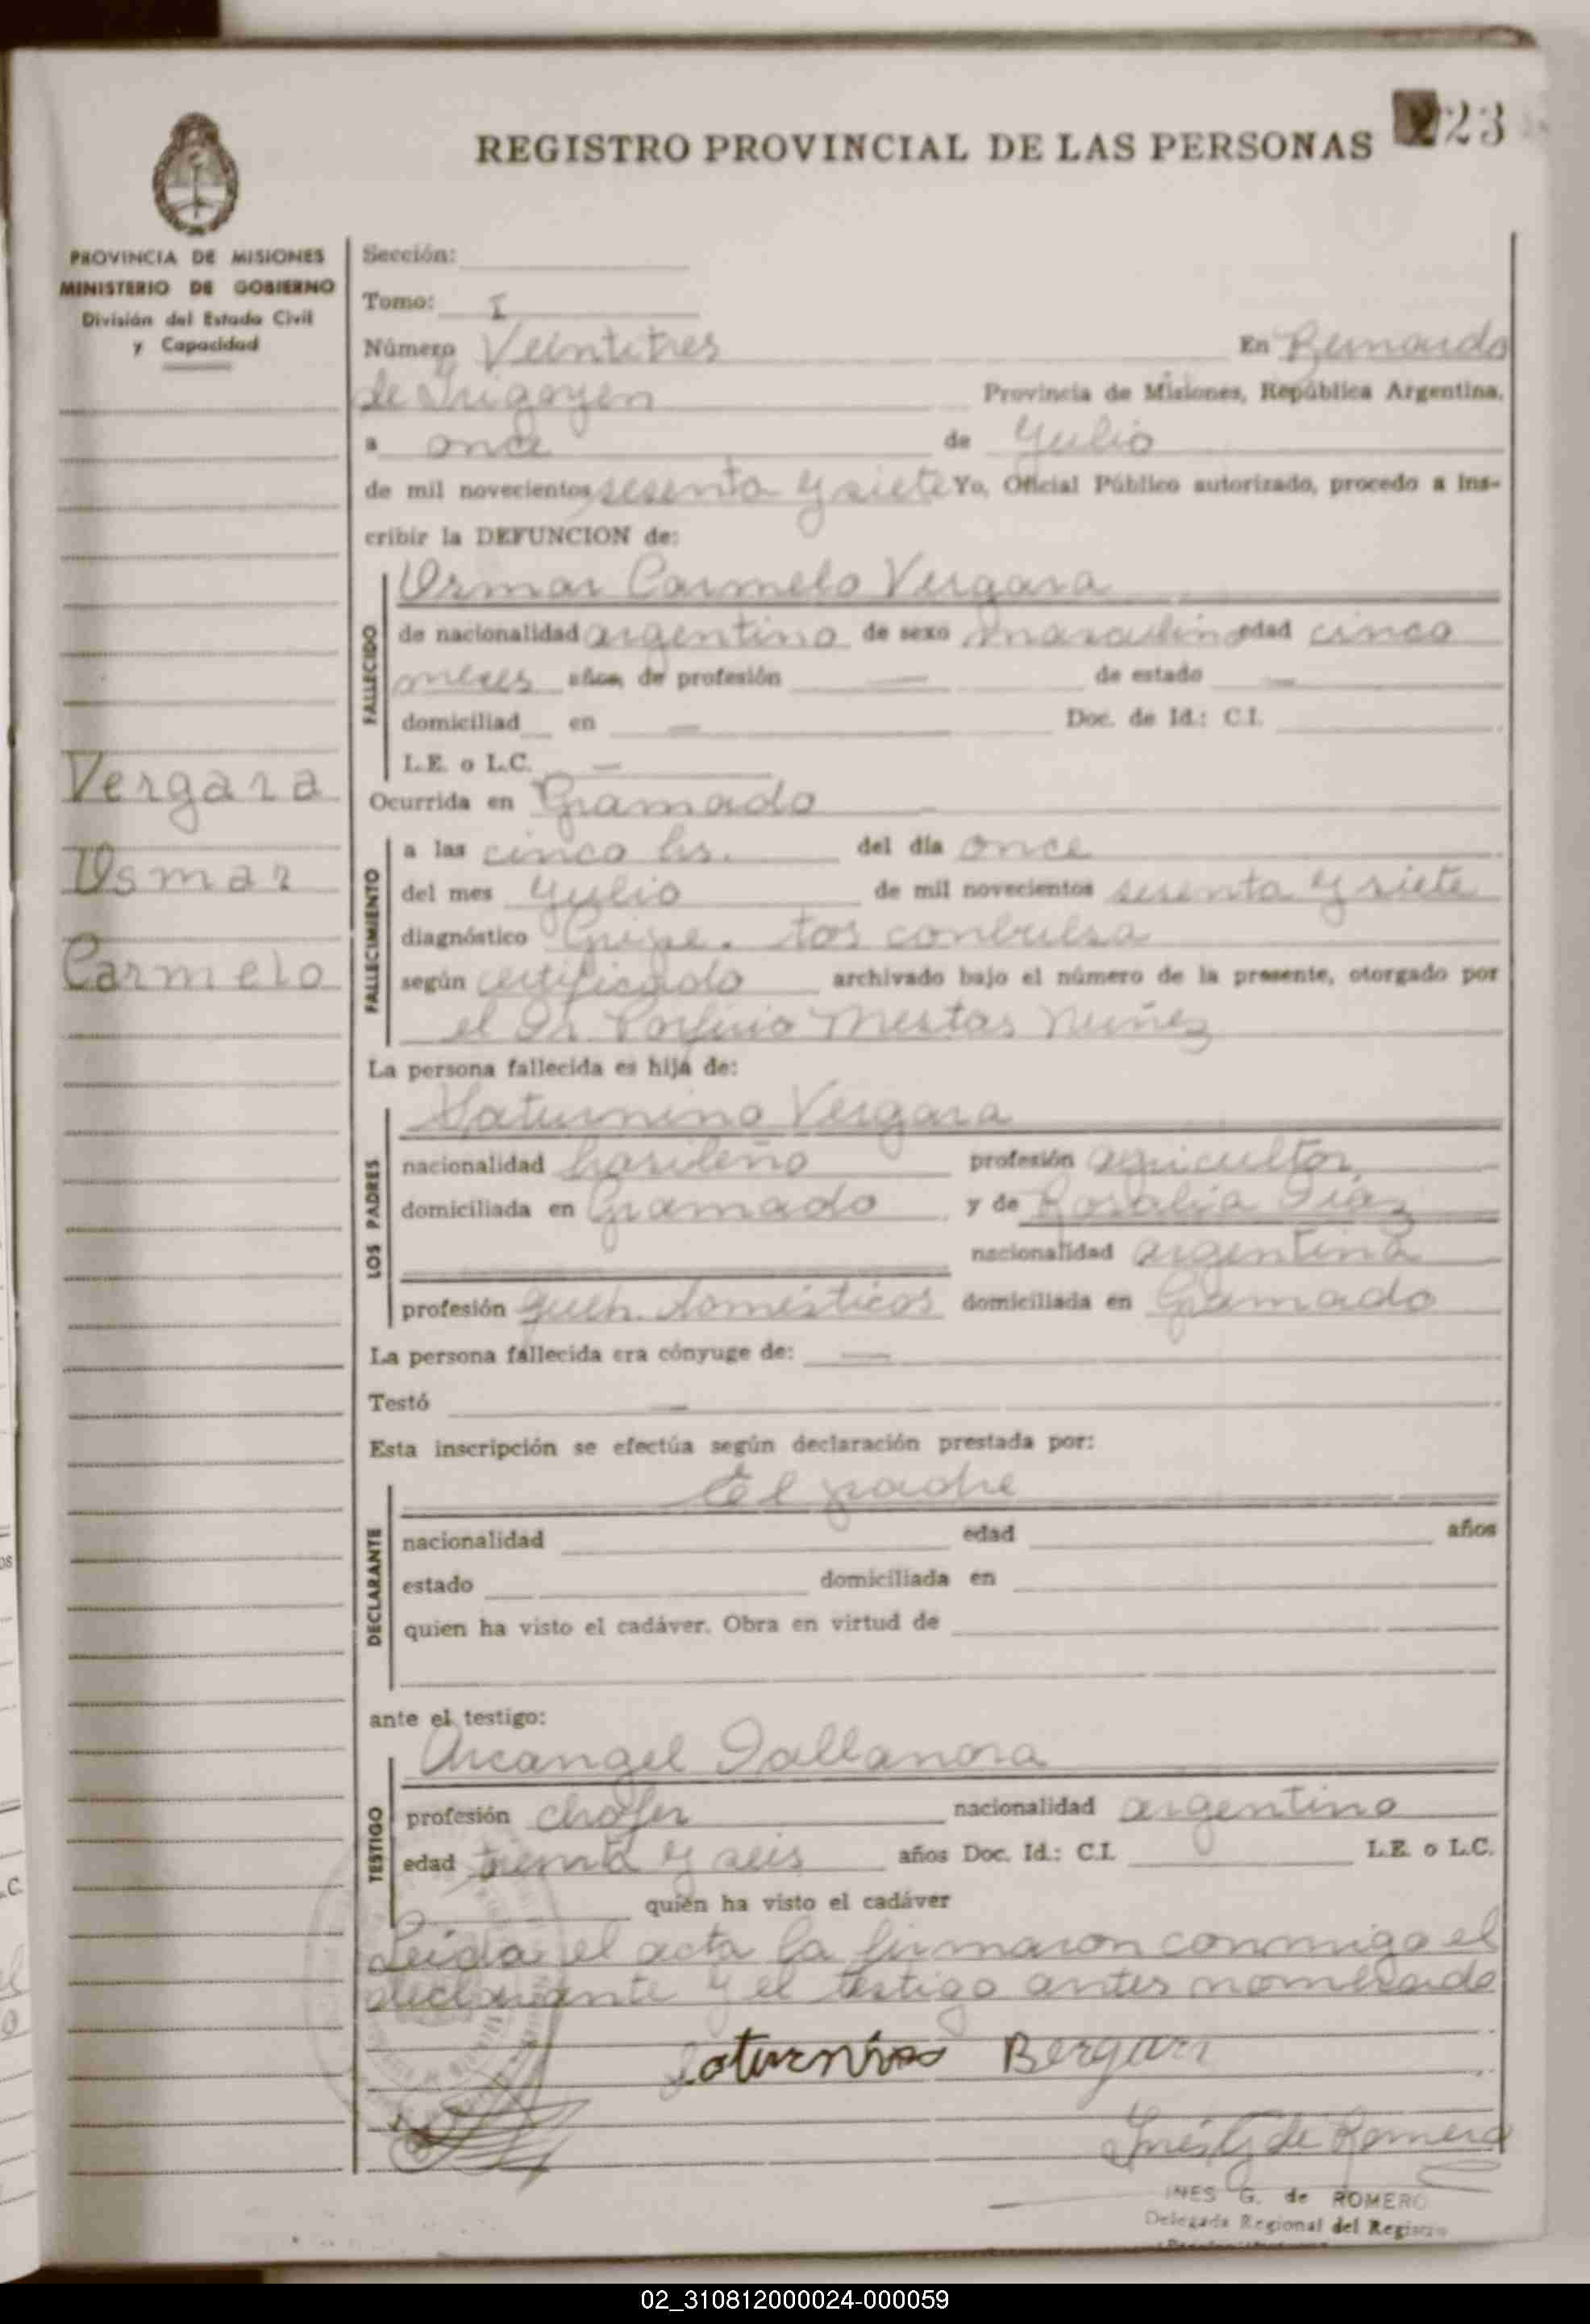 REGISTRO PROVINCIAL DE LAS PERSONAS 23
PROVINCIA DE MISIONES
MINISTERIO DE GOBIERNO
División del Estado Civil
y Capacidad
Vergara
Osmar
Carmelo
Sección:
Tomo: I
Número Veintitres En Bernardo
de Irigoyen Provincia de Misiones, República Argentina,
a once de Julio
de mil novecientos sesenta y siete Yo, Oficial Público autorizado, procedo a ins-
cribir la DEFUNCION de:
FALLECIDO
Osmar Carmelo Vergara
de nacionalidad argentino de sexo masculino edad cinco
meses años, de profesión — de estado —
domiciliad en — Doc. de Id.: C.I.
L.E. o L.C. —
Ocurrida en Gramado
FALLECIMIENTO
a las cinco hs. del día once
del mes Julio de mil novecientos sesenta y siete
diagnóstico Gripe. tos conbulsa
según certificado archivado bajo el número de la presente, otorgado por
el Dr Porfirio Mestas Nuñez
La persona fallecida es hija de:
LOS PADRES
Saturnino Vergara
nacionalidad brasileño profesión agricultor
domiciliada en Gramado y de Rosalia Diaz
nacionalidad argentina
profesión queh. domésticos domiciliada en Gramado
La persona fallecida era cónyuge de: —
Testó —
Esta inscripción se efectúa según declaración prestada por:
DECLARANTE
el padre
nacionalidad edad años
estado domiciliada en
quien ha visto el cadáver. Obra en virtud de
ante el testigo:
TESTIGO
Arcangel Dallanora
profesión chofer nacionalidad argentino
edad treinta y seis años Doc. Id.: C.I. L.E. o L.C.
quién ha visto el cadáver
Leida el acta la firmaron conmigo el
declarante y el testigo antes nombrado
Saturnino Bergara
Inés G de Romero
INES G. de ROMERO
Delegada Regional del Registro
02_310812000024-000059